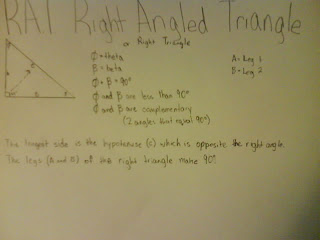 RAT Right Angled Triangle
or Right Triangle
θ = theta
β = beta
θ + β = 90°
θ and β are less than 90°
θ and β are complementary
(2 angles that equal 90°)
A = Leg 1
B = Leg 2
The longest side is the hypotenuse (c) which is opposite the right angle.
The legs (A and B) of the right triangle make 90°